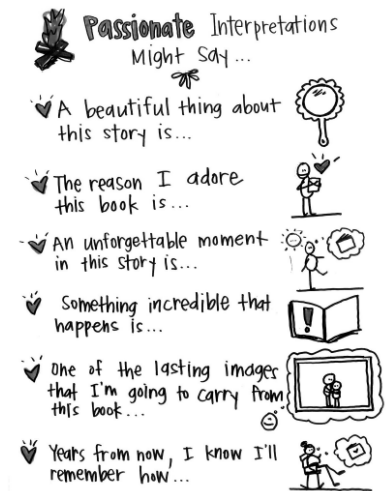 Passionate Interpretations
Might Say...
A beautiful thing about
this story is...
The reason I adore
this book is...
An unforgettable moment
in this story is...
Something incredible that
happens is...
!
One of the lasting images
that I'm going to carry from
this book...
Years from now, I know I'll
remember how...